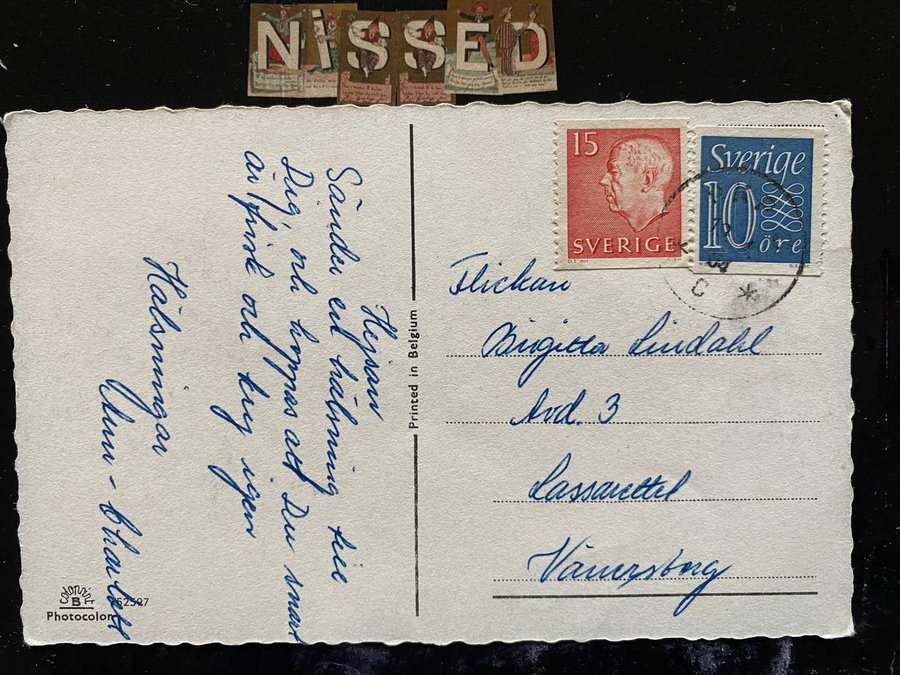 NiSSED
Hejsan
Sänder en hälsning till
Dig, och hoppas att Du snart
är frisk och kry igen
Hälsningar
Ann-Charlott
Printed in Belgium
colorprint
B
52527
Photocolor
15
SVERIGE
Sverige
10
öre
Flickan
Birgitta Lindahl
Avd. 3
Lassarettet
Vänersborg